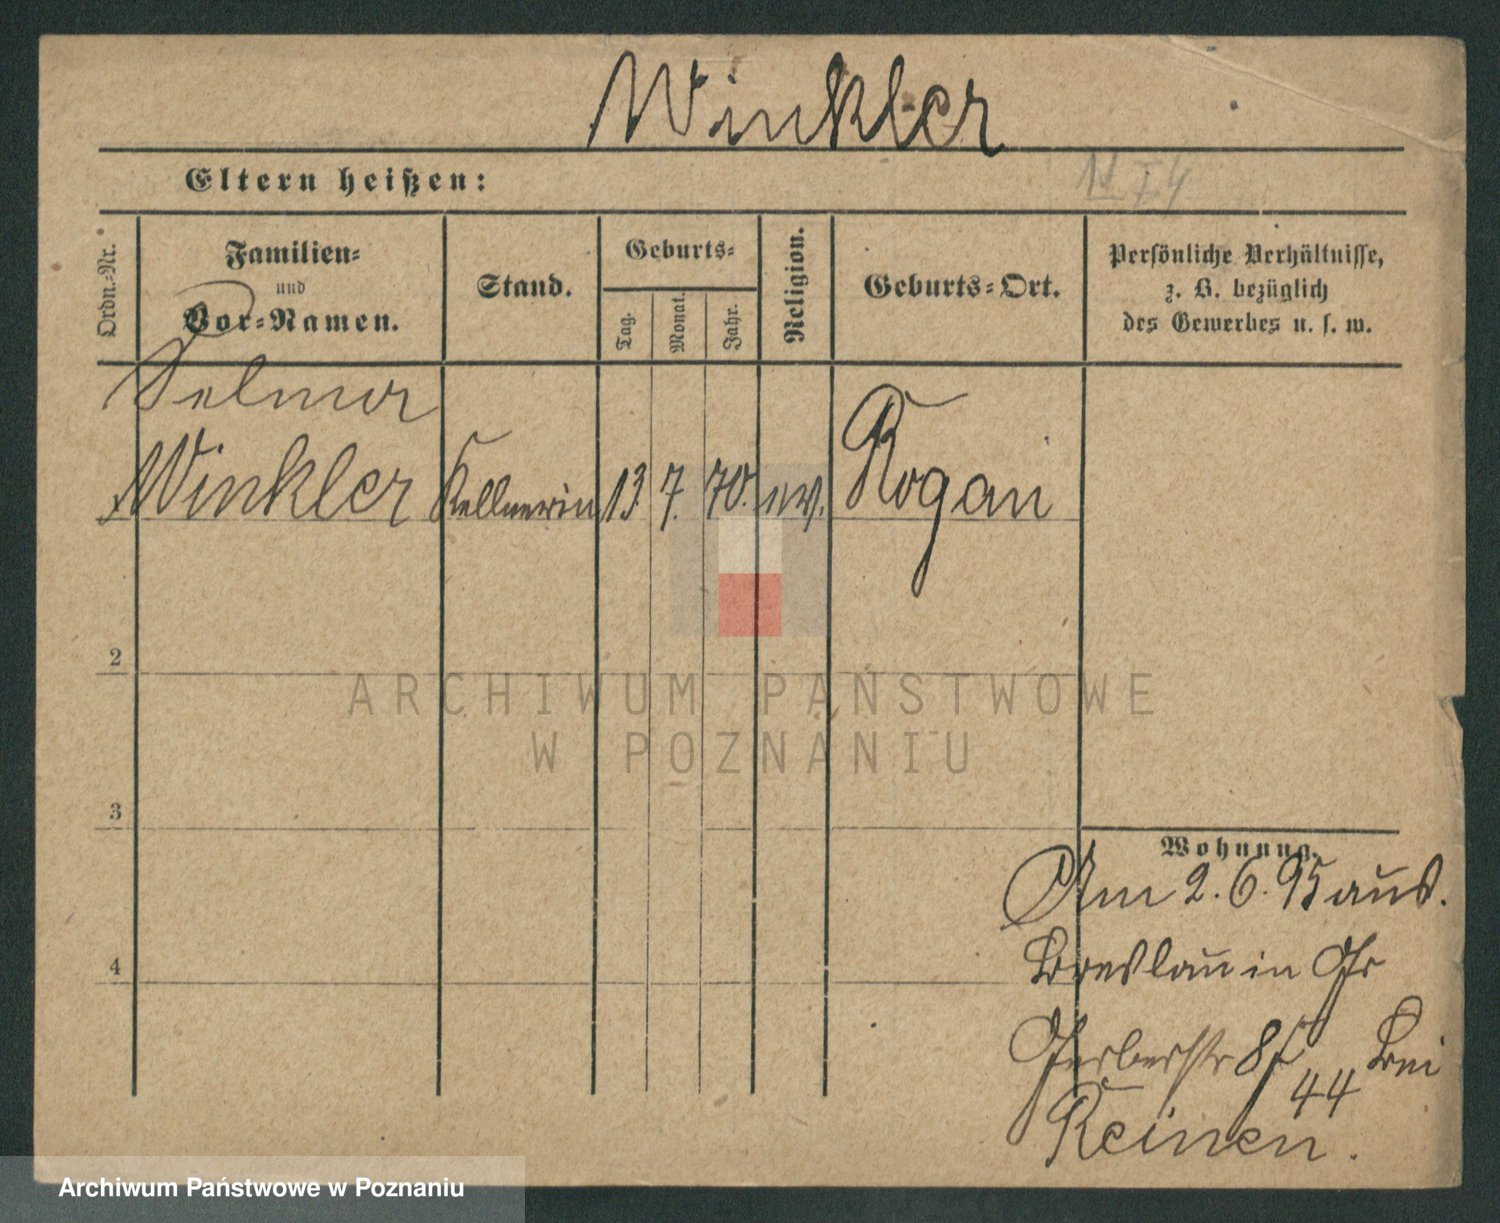 Winkler
Eltern heißen:
Ordn.-Nr.
Familien-
und
Vor-Namen.
Stand.
Geburts-
Tag.
Monat.
Jahr.
Religion.
Geburts-Ort.
Persönliche Verhältnisse,
z. B. bezüglich
des Gewerbes u. s. w.
Selma
Winkler
Kellnerin
13
7.
70.
ev.
Kogau
2
3
4
Wohnung.
Am 2.6.95 aus.
Breslau in Gr
Gerberstr 8/44 bei
Reinen.
ARCHIWUM PAŃSTWOWE
W POZNANIU
Archiwum Państwowe w Poznaniu